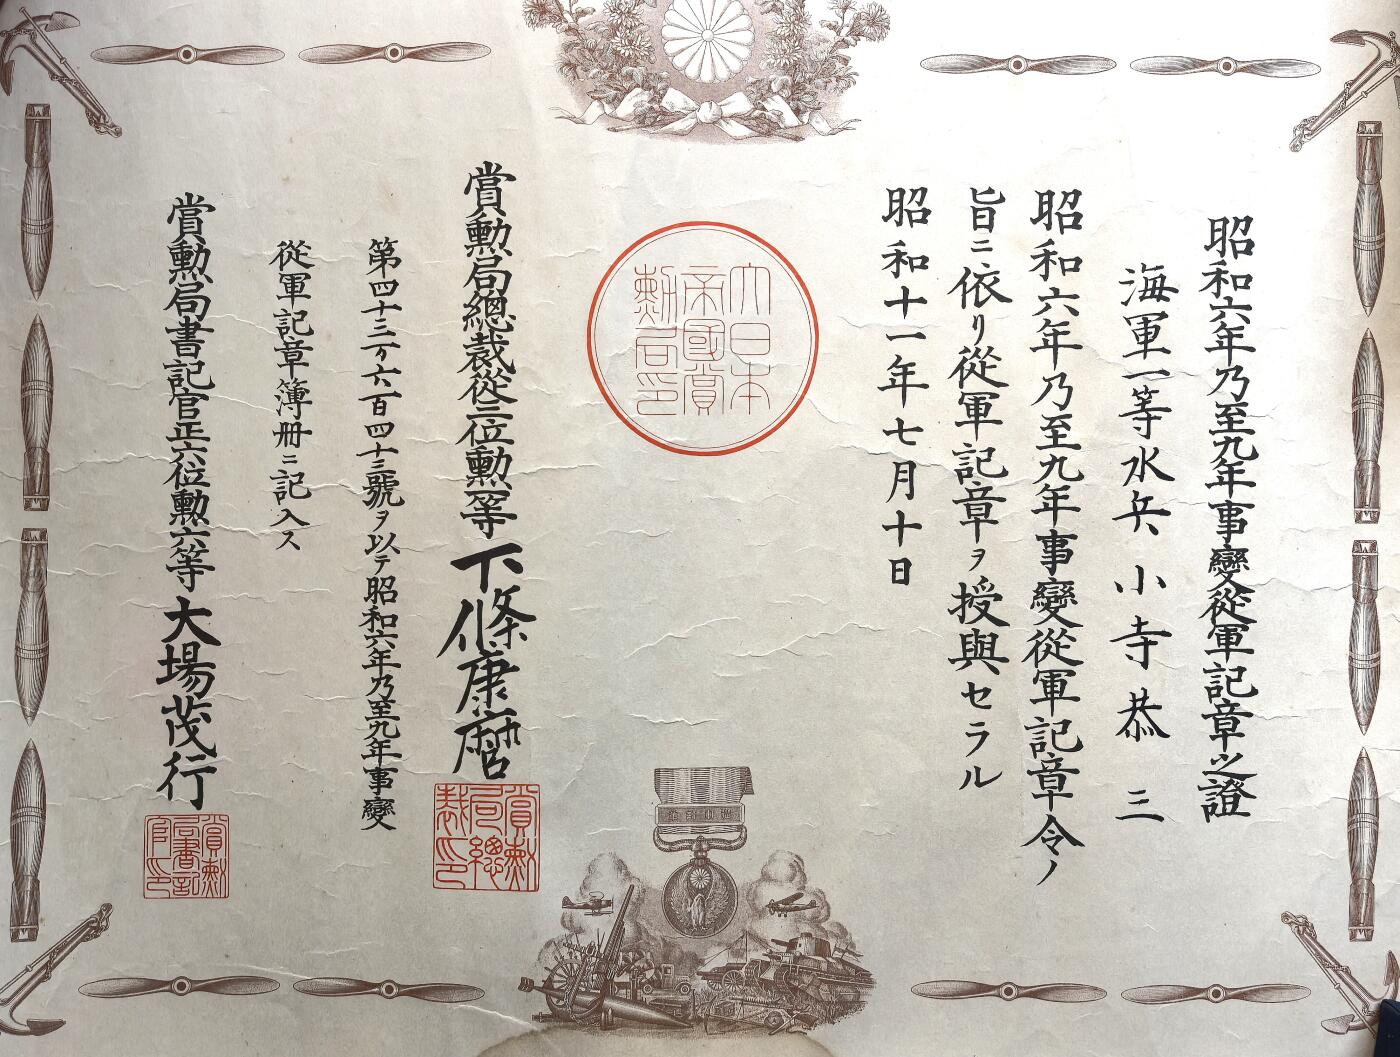 昭和六年乃至九年事變從軍記章之證
海軍一等水兵 小寺恭三
昭和六年乃至九年事變從軍記章令ノ
旨ニ依リ從軍記章ヲ授與セラル
昭和十一年七月十日
大日本
帝國賞
勲局印
賞勲局總裁從三位勲一等下條康麿
賞勲
局總
裁印
第四十三万六百四十三號ヲ以テ昭和六年乃至九年事變
從軍記章簿册ニ記入ス
賞勲局書記官正六位勲六等大場茂行
賞勲
局書記
官印